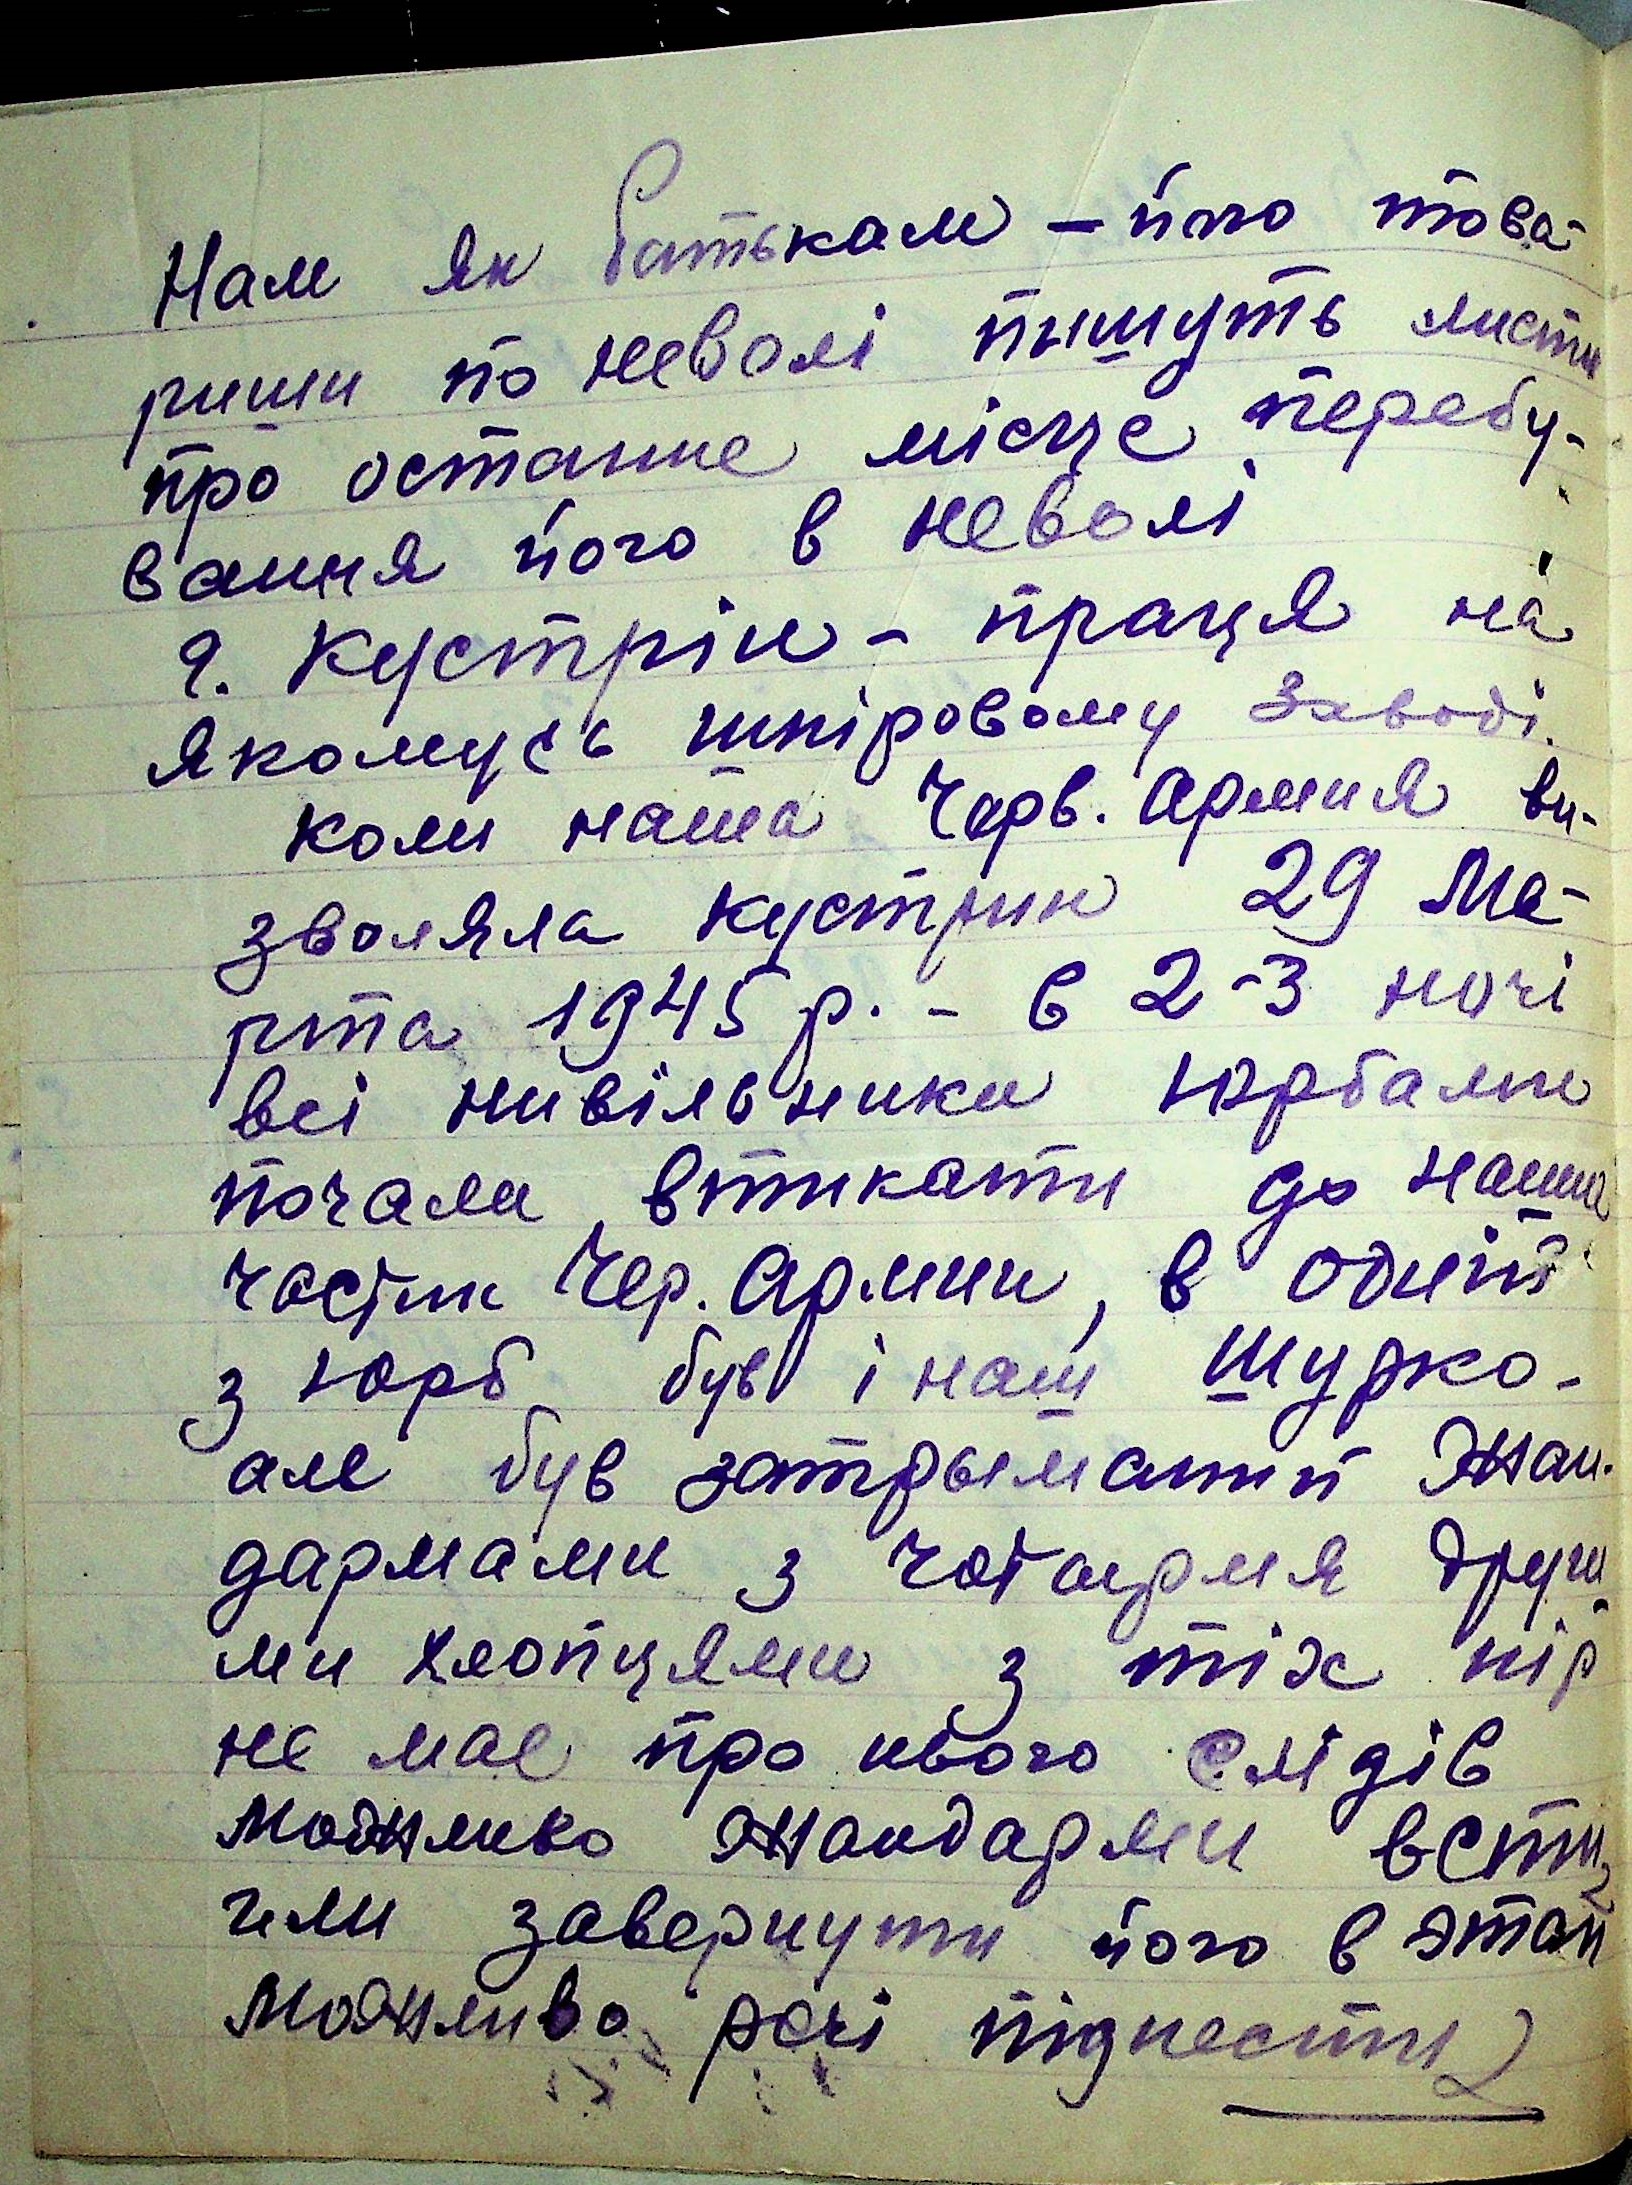 Нам як батькам – його това-
риши по неволі пишуть листи
про останнє місце перебу-
вання його в неволі
г. Кустрін – праця на
якомусь шкіровому заводі.
Коли наша Черв. Армия ви-
зволяла Кустрин 29 Ма-
рта 1945 р. – в 2-3 ночі
всі нивільники юрбами
почали втикати до наших
частин Чер. Армии, в одній
з юрб був і наш Шурко-
але був затрыманий жан-
дармами з чотирмя други
ми хлопцями з тіх пір
не має про нього слідів
можливо жандарми всти
гли завернути його в этап
можливо речі піднести?